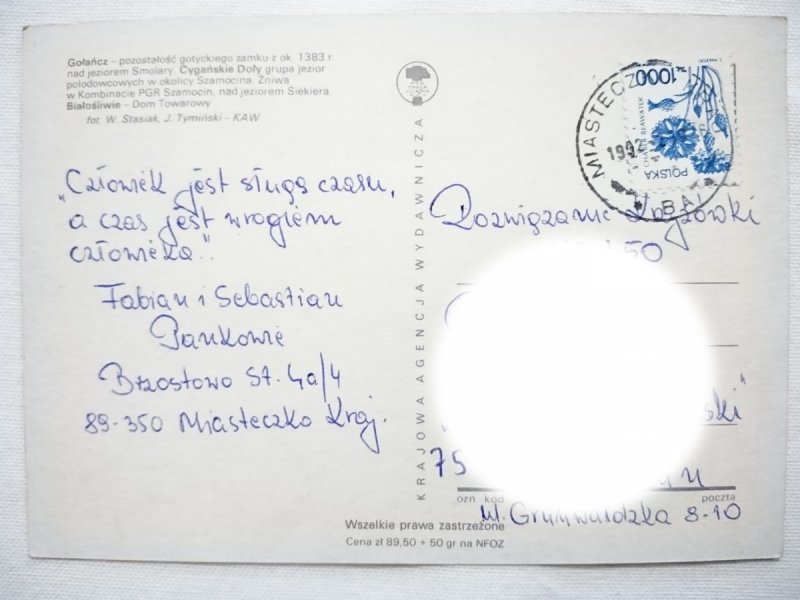 Gołańcz - pozostałość gotyckiego zamku z ok. 1383 r
nad jeziorem Smolary. Cygańskie Doły grupa jezior
polodowcowych w okolicy Szamocina. Żniwa
w Kombinacie PGR Szamocin, nad jeziorem Siekiera.
Białośliwie - Dom Towarowy
fot. W. Stasiak, J. Tymiński - KAW
"Człowiek jest sługą czasu,
a czas jest wrogiem
człowieka".
Fabian i Sebastian
Pankowie
Brzostowo 57. 4a/4
89-350 Miasteczko Kraj.
KRAJOWA AGENCJA WYDAWNICZA
1000 ZŁ
CHABER BŁAWATEK
POLSKA
MIASTECZ
1992
Rozwiązanie Krzyżówki
50
ski"
75
ozn kod
poczta
ul. Grunwaldzka 8-10
Wszelkie prawa zastrzeżone
Cena zł 89,50 + 50 gr na NFOZ